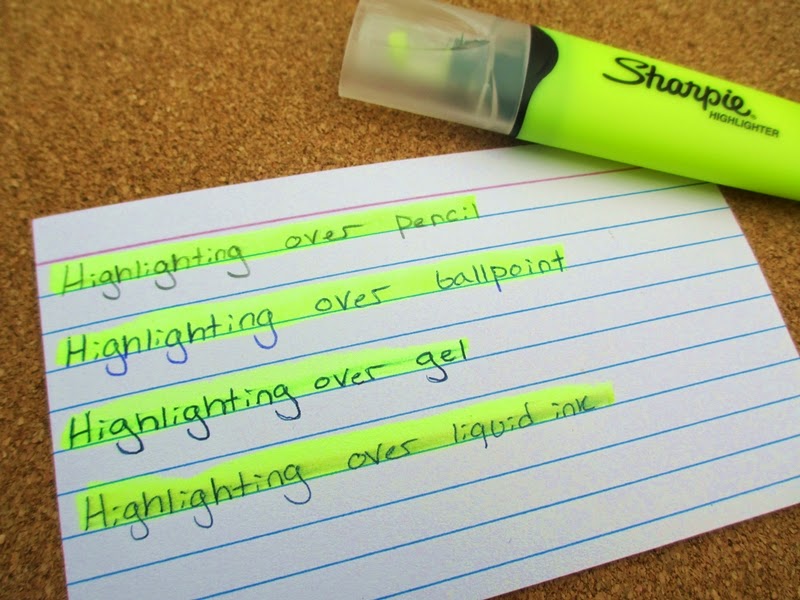 Sharpie
HIGHLIGHTER
Highlighting over pencil
Highlighting over ballpoint
Highlighting over gel
Highlighting over liquid ink